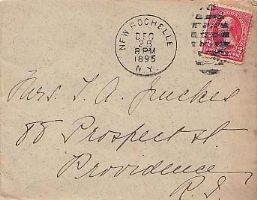 NEW ROCHELLE
DEC
28
8 PM
1895
N.Y.
Mrs. T. A.
88 Prospect st.
Providence
R.I.